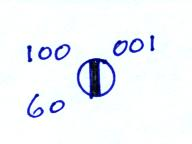 100 001
60